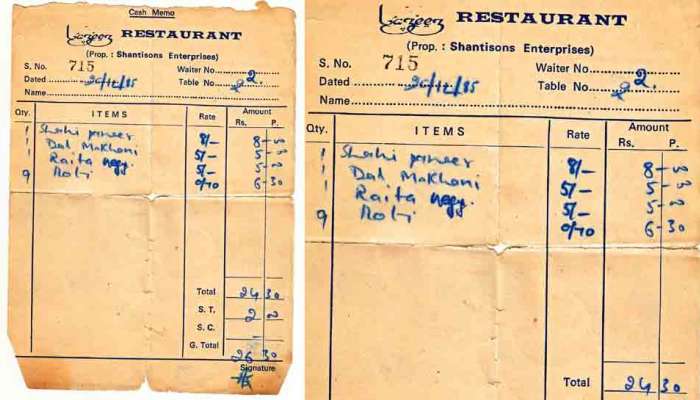 Cash Memo
Lazeez RESTAURANT
(Prop. : Shantisons Enterprises)
S. No. 715 Waiter No. 2
Dated 20/12/85 Table No.
Name
Qty. ITEMS Rate Amount
Rs. P.
1 Shahi paneer 8/- 8-00
1 Dal Makhani 5/- 5-00
1 Raita 5/- 5-00
9 Roti 0/70 6-30
Total 24 30
S. T. 2 00
S. C. -
G. Total 26 30
Signature
Lazeez RESTAURANT
(Prop. : Shantisons Enterprises)
S. No. 715 Waiter No. 2.
Dated 20/12/85 Table No.
Name
Qty. ITEMS Rate Amount
Rs. P.
1 Shahi paneer 8/- 8-00
1 Dal Makhani 5/- 5-00
1 Raita 5/- 5-00
9 Roti 0/70 6-30
Total 24 30